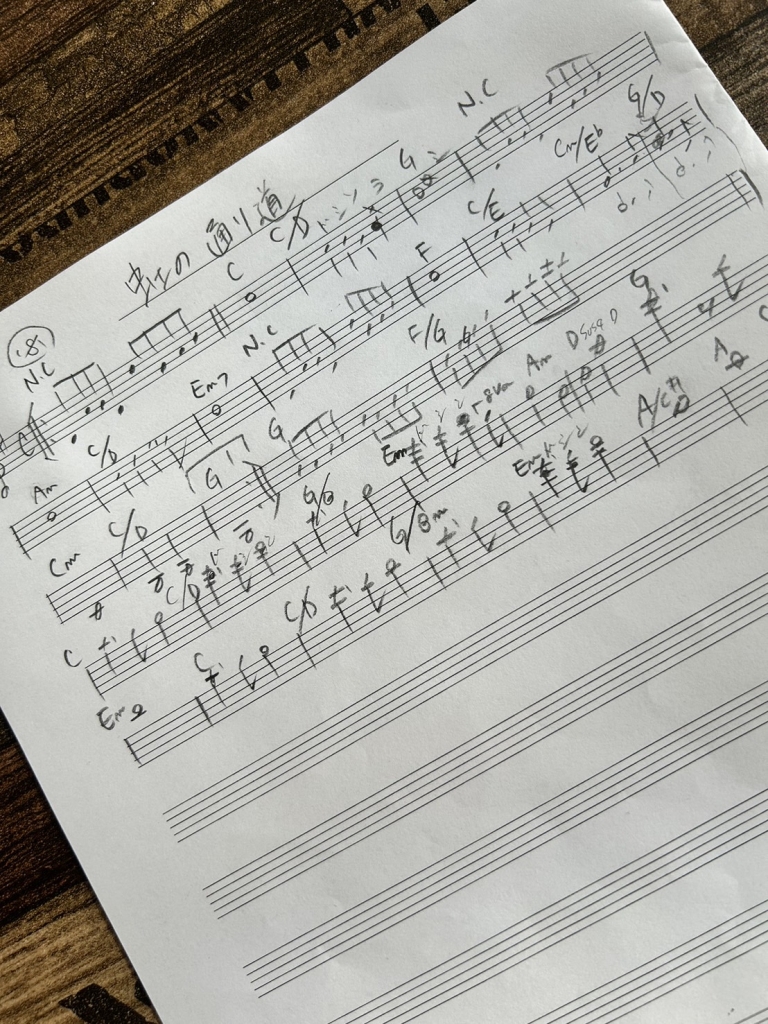 虹の通り道
18
N.C C C/D トシソラ G N.C
Am C/D Em7 N.C F C/E Cm/E♭ G/D
Cm C/D G G F/G
C C/D G/B Em Am Dsus4 D G
Em C C/D G/B Em A/C# A